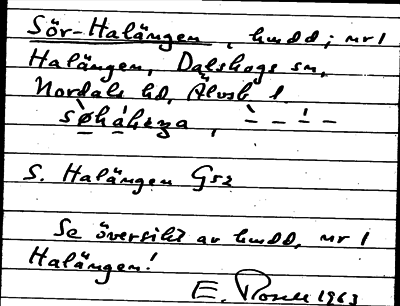 Sör-Halängen, hmdd; nr 1
Halängen, Dalskogs sn,
Nordals hd, Älvsb l.
S. Halängen G52
Se översikt av hmdd, nr 1
Halängen!
E. 1963